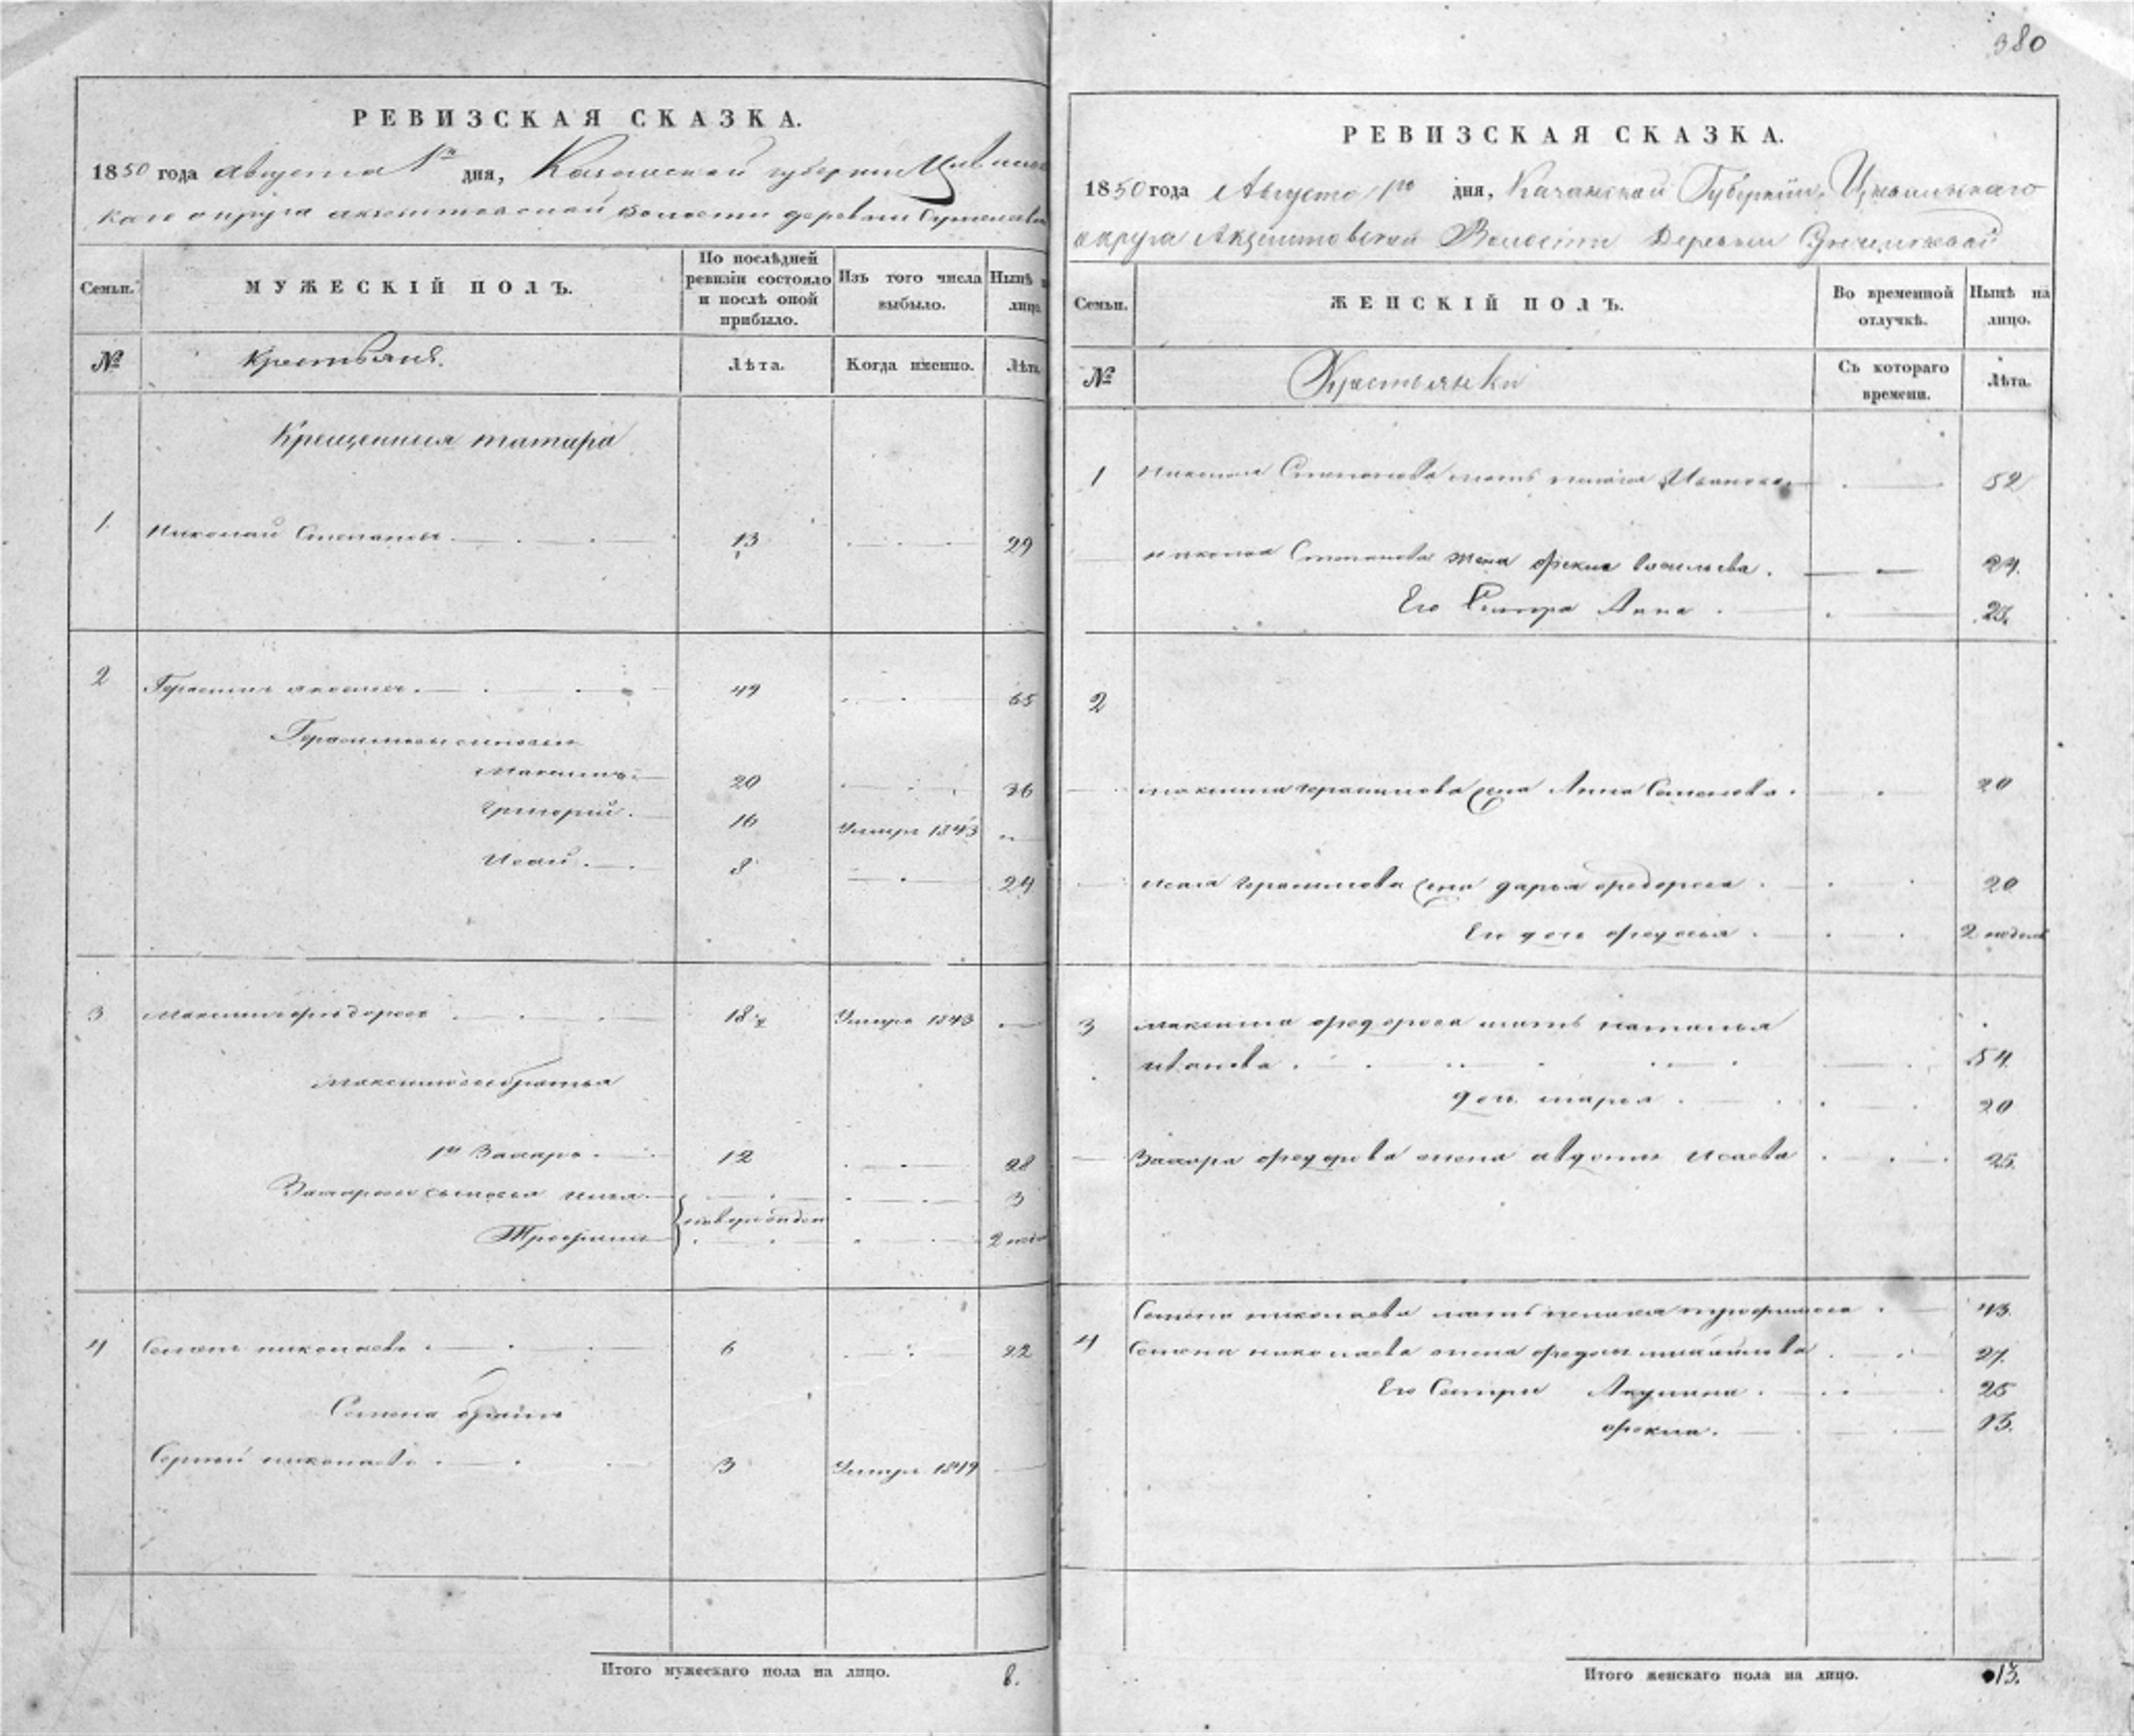 380
РЕВИЗСКАЯ СКАЗКА.
1850 года августа 1го дня, Казанской губернии Цивильс
каго округа акзегитовской волости деревни
Семьи. МУЖЕСКІЙ ПОЛЪ. По послѣдней ревизіи состояло и послѣ оной прибыло. Изъ того числа выбыло. Нынѣ на лицо.
№ Крестьяне. Лѣта. Когда именно. Лѣта.
Крещенныя татара
1 Николай Степановъ 13 29
2 Герасимъ 49 65
Герасимовы сыновья
Максимъ 20 36
Григорий 16 Умеръ 1843
Исай 8 24
3 Максимъ Федоровъ 18 Умеръ 1843
Максимовы братья
1й Захаръ 12 28
Захаровы сыновья Илья 3
новорожден
Трофимъ 2 неде
4 Семенъ николаевъ 6 22
Семена братъ
Сергей николаевъ 3 Умеръ 1849
Итого мужескаго пола на лицо. 8.
РЕВИЗСКАЯ СКАЗКА.
1850 года Августа 1го дня, Казанской Губернии, Цивильскаго
округа Акзегитовской Волости Деревни
Семьи. ЖЕНСКІЙ ПОЛЪ. Во временной отлучкѣ. Нынѣ на лицо.
№ Крестьянки Съ котораго времени. Лѣта.
1 Николая Степанова мать Иванова 52
Николая Степанова жена фекла Васильева. 24.
Его Сестра Анна 23.
2
максима герасимова жена Анна Семенова. 20
исая герасимова жена дарья федорова 20
Ея дочь федосья 2 недели
3 максима федорова мать наталья
иванова 54.
дочь марья 20
Захара федорова жена авдотья Исаева 25.
Семена николаева мать пелагея трофимова 43.
4 Семена николаева жена федосья михайлова 27.
Его Сестры Акулина 25
фекла. 13.
Итого женскаго пола на лицо. 13.